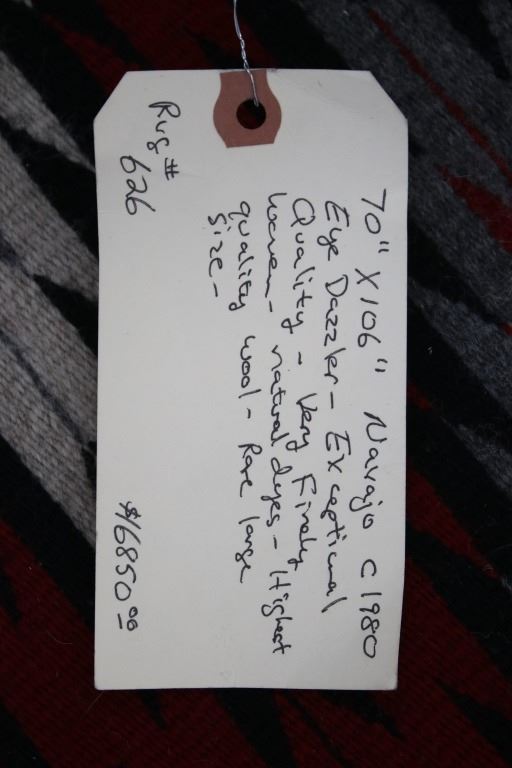 70" X 106" Navajo C 1980
Eye Dazzler - Exceptional
Quality - Very Finely
woven - natural dyes - Highest
quality wool - Rare large
size -
Rug #
626
$16850.00